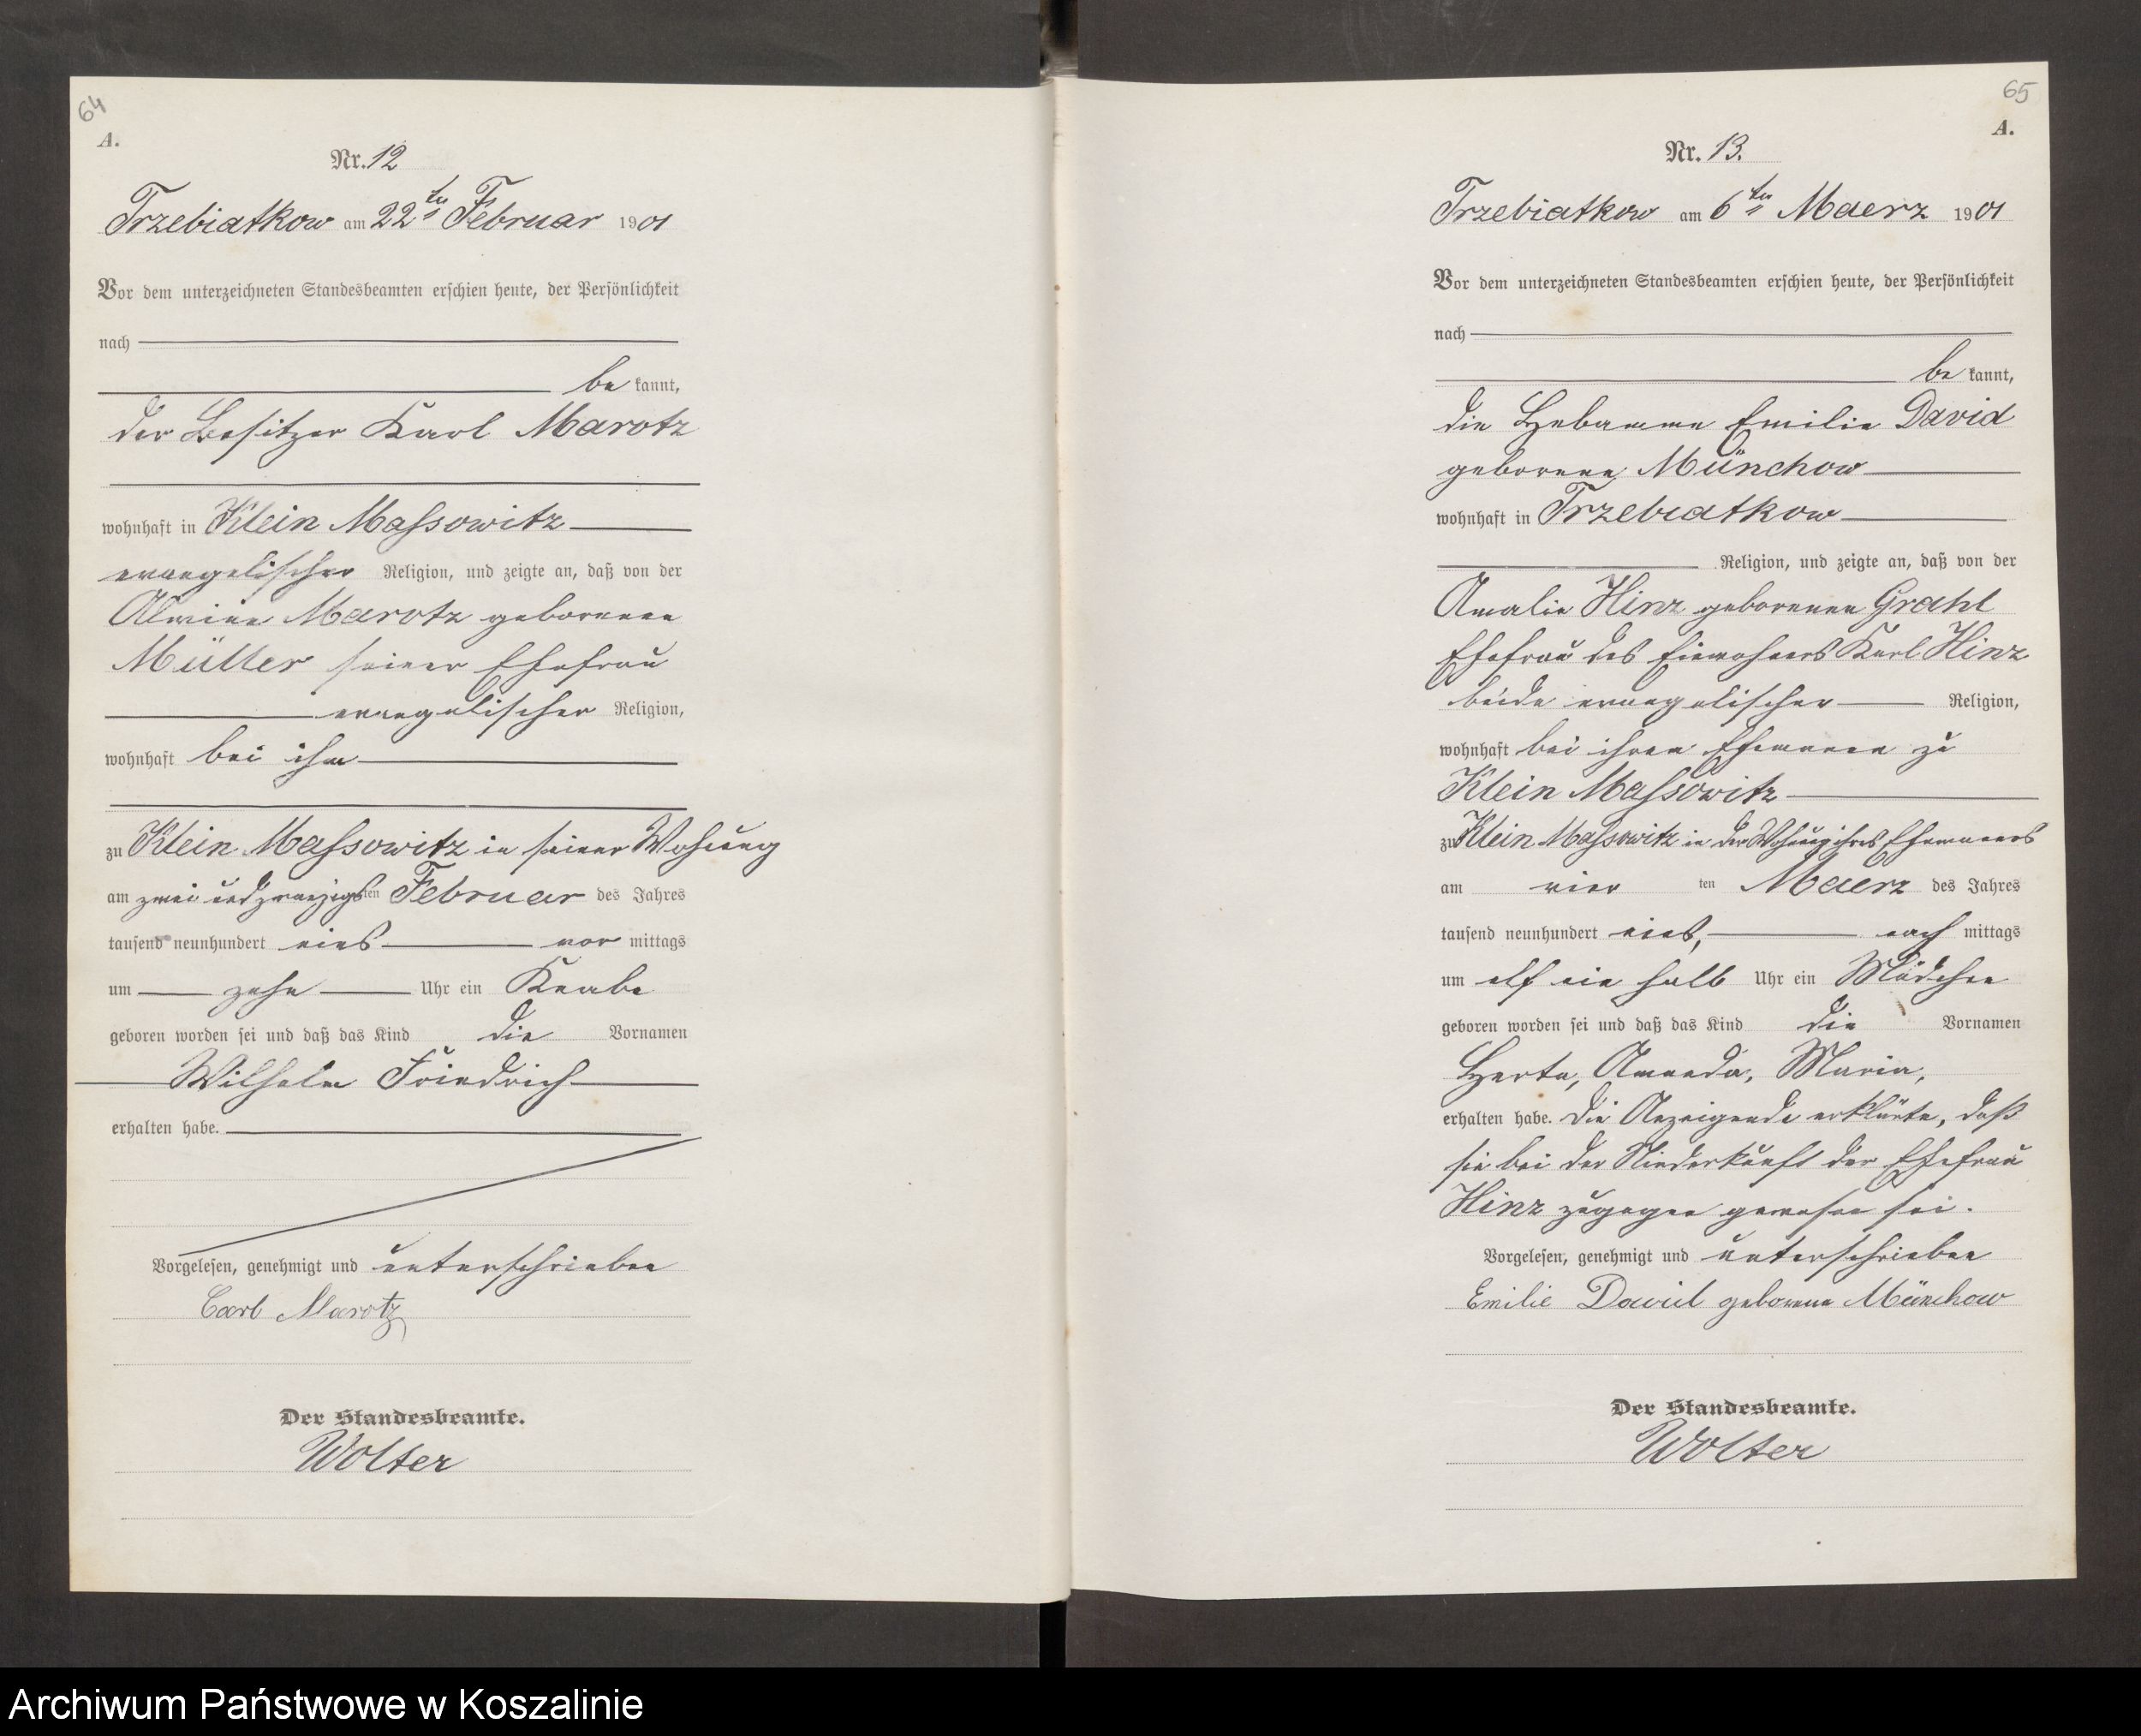 64
A.
Nr. 12
Trzebiatkow am 22ten Februar 1901
Vor dem unterzeichneten Standesbeamten erschien heute, der Persönlichkeit
nach
be kannt,
der Besitzer Karl Marotz
wohnhaft in Klein Massowitz
evangelischer Religion, und zeigte an, daß von der
Alwine Marotz geborenen
Müller seiner Ehefrau
evangelischer Religion,
wohnhaft bei ihm
zu Klein Massowitz in seiner Wohnung
am zwei und zwanzigsten Februar des Jahres
tausend neunhundert eins vor mittags
um zehn Uhr ein Knabe
geboren worden sei und daß das Kind die Vornamen
Wilhelm Friedrich
erhalten habe.
Vorgelesen, genehmigt und unterschrieben
Carl Marotz
Der Standesbeamte.
Wolter
65
A.
Nr. 13.
Trzebiatkow am 6ten Maerz 1901
Vor dem unterzeichneten Standesbeamten erschien heute, der Persönlichkeit
nach
be kannt,
die Hebamme Emilie David
geborene Münchow
wohnhaft in Trzebiatkow
Religion, und zeigte an, daß von der
Amalie Hinz geborenen Grahl
Ehefrau des Einwohners Karl Hinz
beide evangelischer Religion,
wohnhaft bei ihrem Ehemanne zu
Klein Massowitz
zu Klein Massowitz in der Wohnung ihres Ehemannes
am vier ten Maerz des Jahres
tausend neunhundert eins, nach mittags
um elf ein halb Uhr ein Mädchen
geboren worden sei und daß das Kind die Vornamen
Herta, Amanda, Maria,
erhalten habe. Die Anzeigende erklärte, daß
sie bei der Niederkunft der Ehefrau
Hinz zugegen gewesen sei.
Vorgelesen, genehmigt und unterschrieben
Emilie David geborene Münchow
Der Standesbeamte.
Wolter
Archiwum Państwowe w Koszalinie